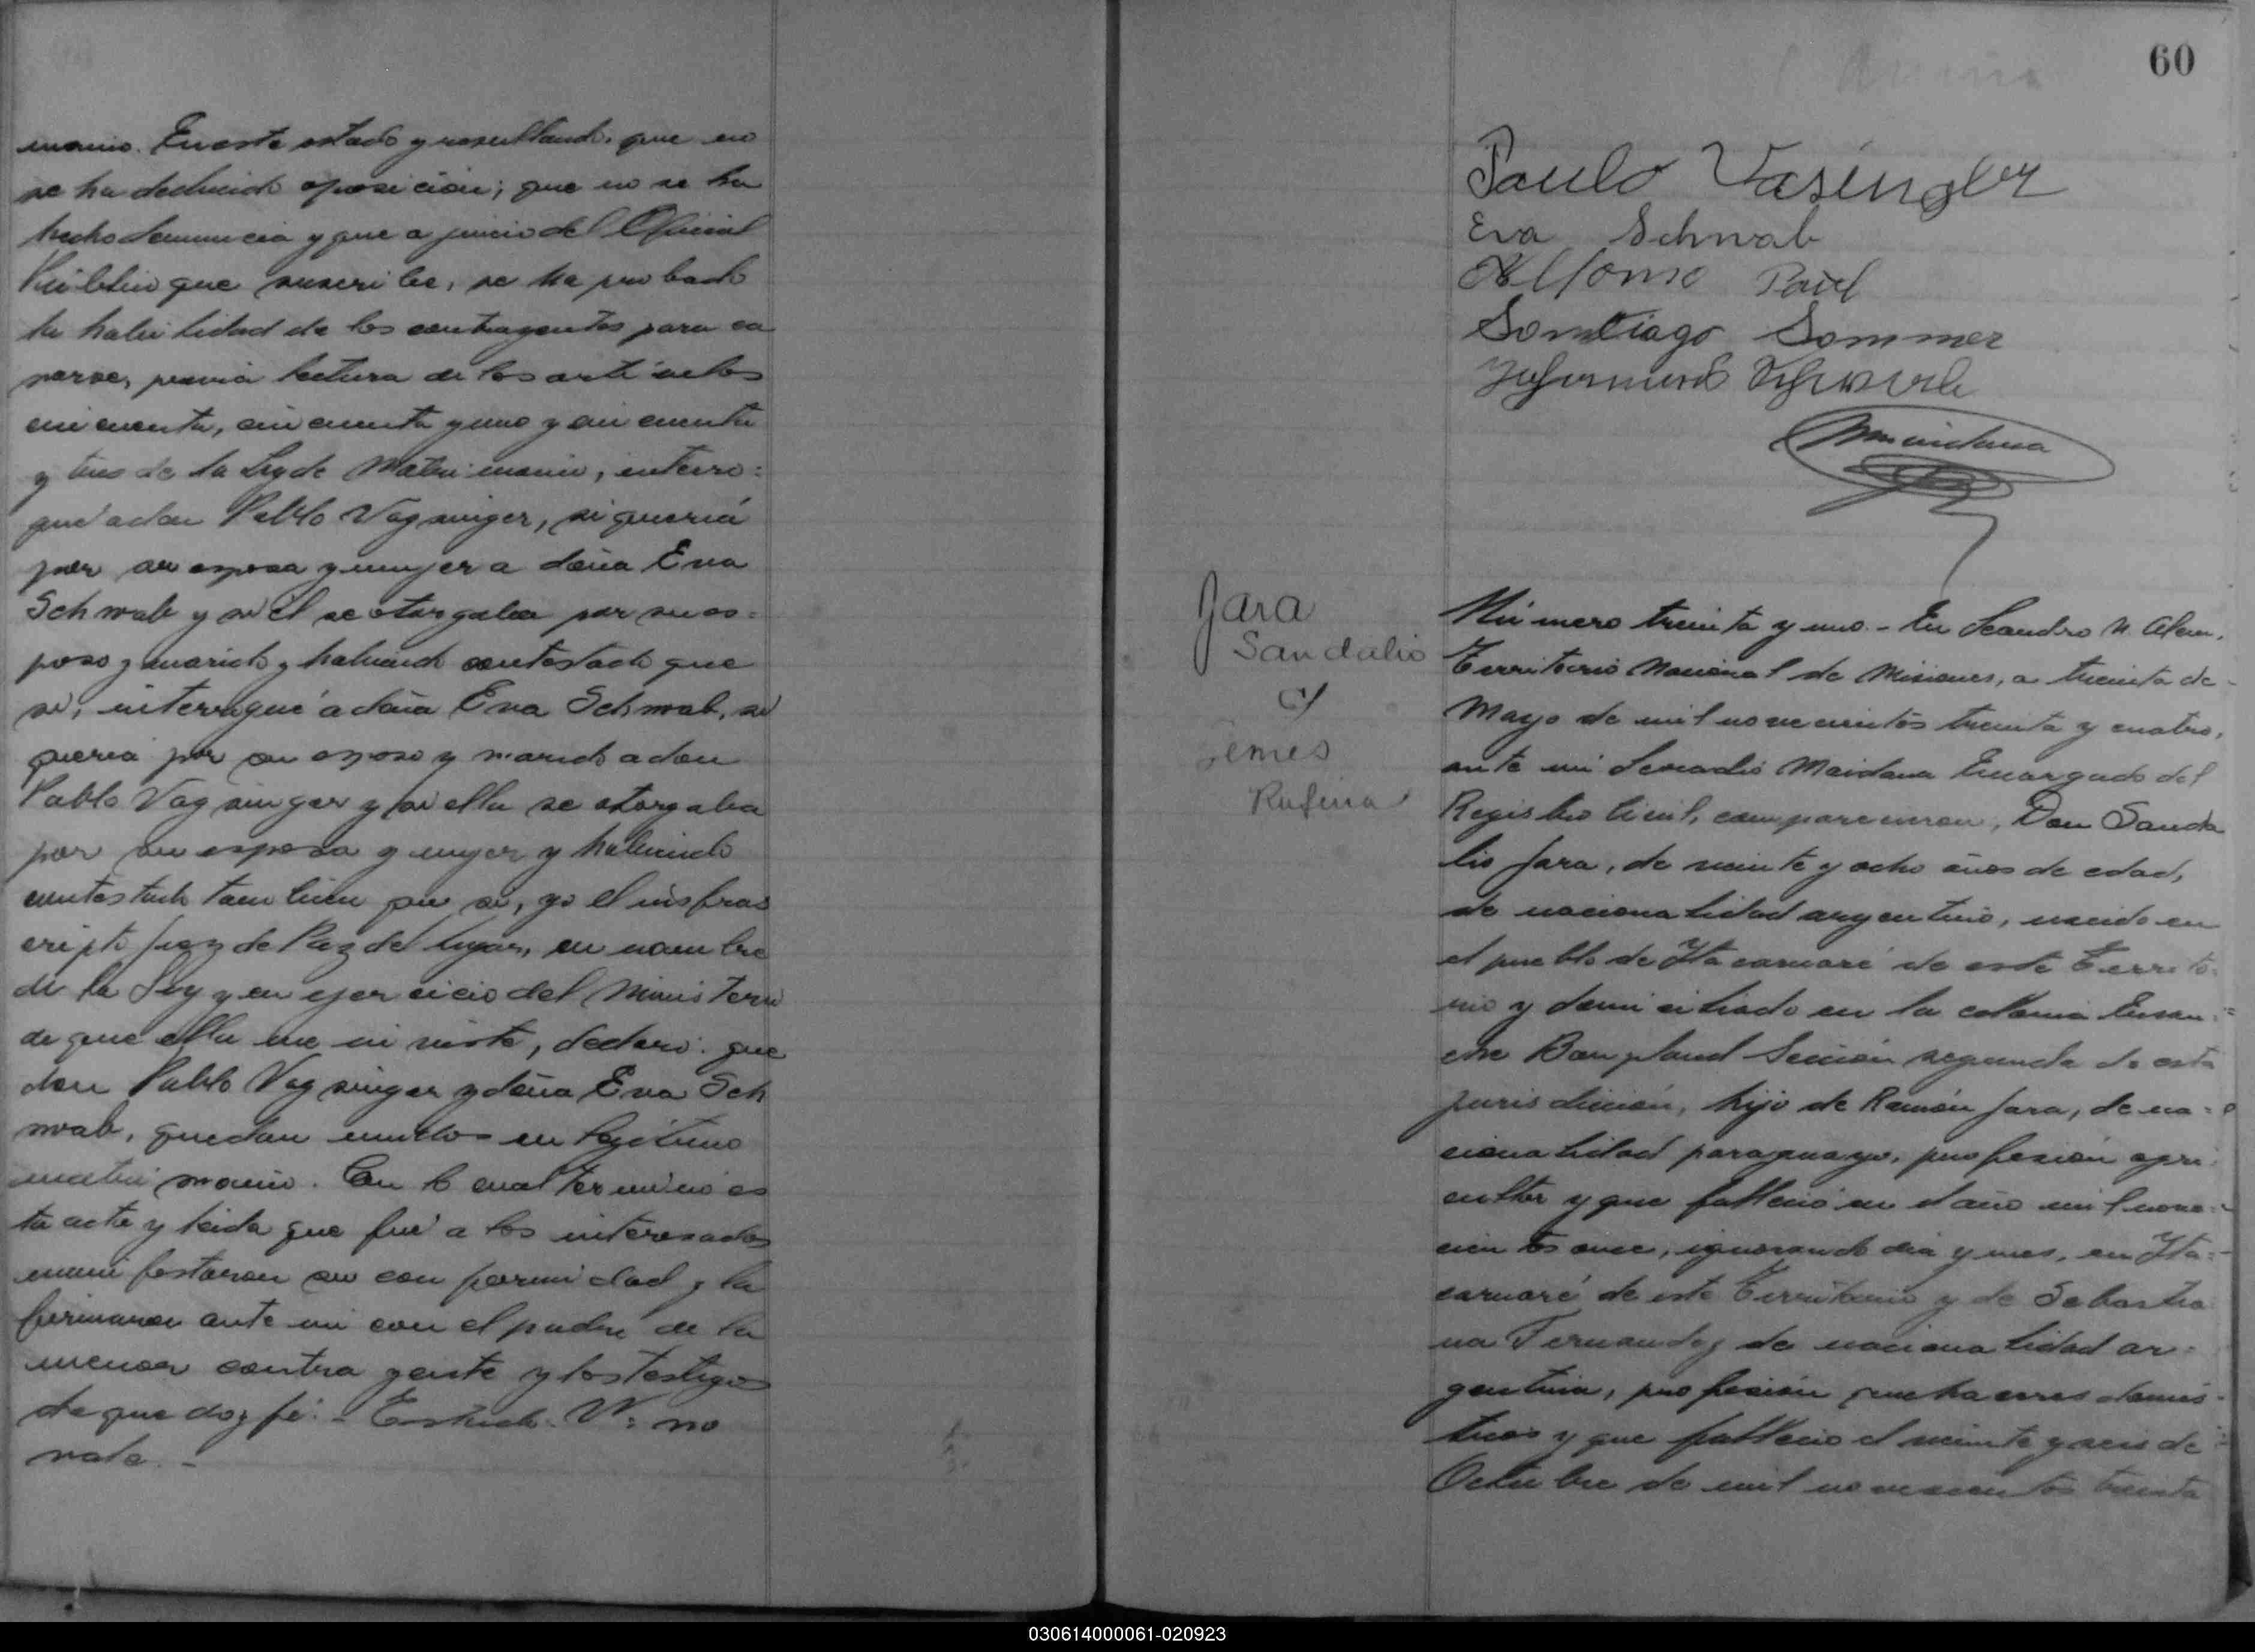 monio. En este estado y resultando, que no
se ha deducido oposición; que no se ha
hecho denuncia y que a juicio del Oficial
Público que suscribe, se ha probado
la habilidad de los contrayentes para ca
sarse, previa lectura de los artículos
cincuenta, cincuenta y uno y cincuenta
y tres de la Ley de Matrimonio, interro=
gué a don Pablo Vagsinger, si quería
por su esposa y mujer a doña Eva
Schwab y si él se otorgaba por su es=
poso y marido y habiendo contestado que
si, interrogué a doña Eva Schwab, si
quería por su esposo y marido a don
Pablo Vagsinger y si ella se otorgaba
por su esposa y mujer y habiendo
contestado tambien que si, yo el infras
cripto Juez de Paz del lugar, en nombre
de la Ley y en ejercicio del Ministerio
de que ella me inviste, declaro: que
don Pablo Vagsinger y doña Eva Sch
wab, quedan unidos en legítimo
matrimonio. Con lo cual terminó es
ta acta y leida que fué a los interesados
manifestaron su conformidad y la
firmaron ante mi con el padre de la
menor contrayente y los testigos
de que doy fé.- Entrelo. V: no
vale.-
60
Paulo Vasingler
Eva Schwab
Alfonso Paul
Somtiago Sommer
Schwab
Maidana
Jara
Sandalio
y
Femes
Rufina
Número treinta y uno.- En Leandro N. Alem,
Territorio Nacional de Misiones, a treinta de
Mayo de mil novecientos treinta y cuatro,
ante mi Leocadio Maidana Encargado del
Registro Civil, comparecieron, Don Sanda
lio Jara, de veinte y ocho años de edad,
de nacionalidad argentino, nacido en
el pueblo de Itacaruaré de este Territo=
rio y domiciliado en la colonia Ensan=
che Bonpland Sección segunda de esta
jurisdicción, hijo de Ramón Jara, de na=
cionalidad paraguayo, profesión agri
cultor y que falleció en el año mil nove=
cientos once, ignorando dia y mes, en Ita=
caruaré de este Territorio y de Sebastia
na Fernandez de nacionalidad ar=
gentina, profesión quehaceres domés=
ticos y que falleció el veinte y seis de
Octubre de mil novecientos treinta
030614000061-020923